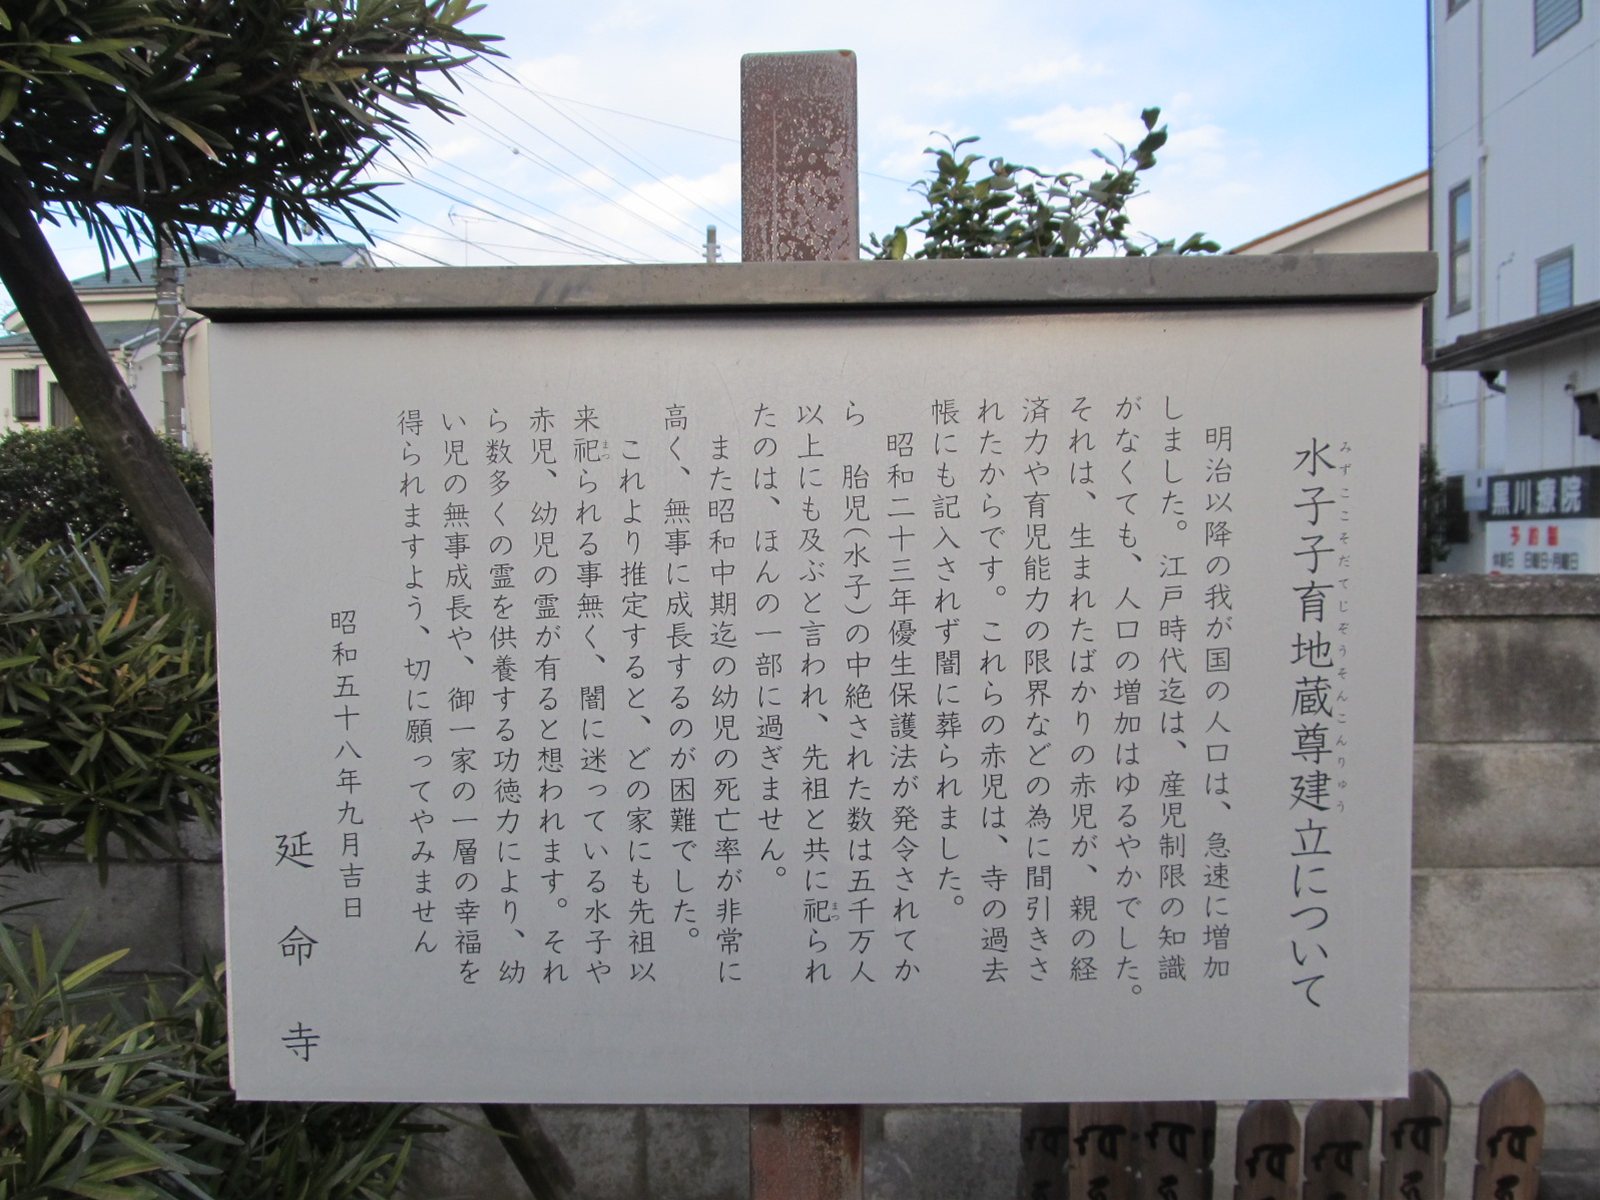 みずこここそだてじぞうそんこんりゅう
水子子育地蔵尊建立について
明治以降の我が国の人口は、急速に増加
しました。江戸時代迄は、産児制限の知識
がなくても、人口の増加はゆるやかでした。
それは、生まれたばかりの赤児が、親の経
済力や育児能力の限界などの為に間引きさ
れたからです。これらの赤児は、寺の過去
帳にも記入されず闇に葬られました。
昭和二十三年優生保護法が発令されてか
ら　胎児(水子)の中絶された数は五千万人
以上にも及ぶと言われ、先祖と共に祀られ
まつ
たのは、ほんの一部に過ぎません。
また昭和中期迄の幼児の死亡率が非常に
高く、無事に成長するのが困難でした。
これより推定すると、どの家にも先祖以
来祀られる事無く、闇に迷っている水子や
まつ
赤児、幼児の霊が有ると想われます。それ
ら数多くの霊を供養する功徳力により、幼
い児の無事成長や、御一家の一層の幸福を
得られますよう、切に願ってやみません
昭和五十八年九月吉日
延命寺
黒川療院
予約制
休診日 日曜日・月曜日